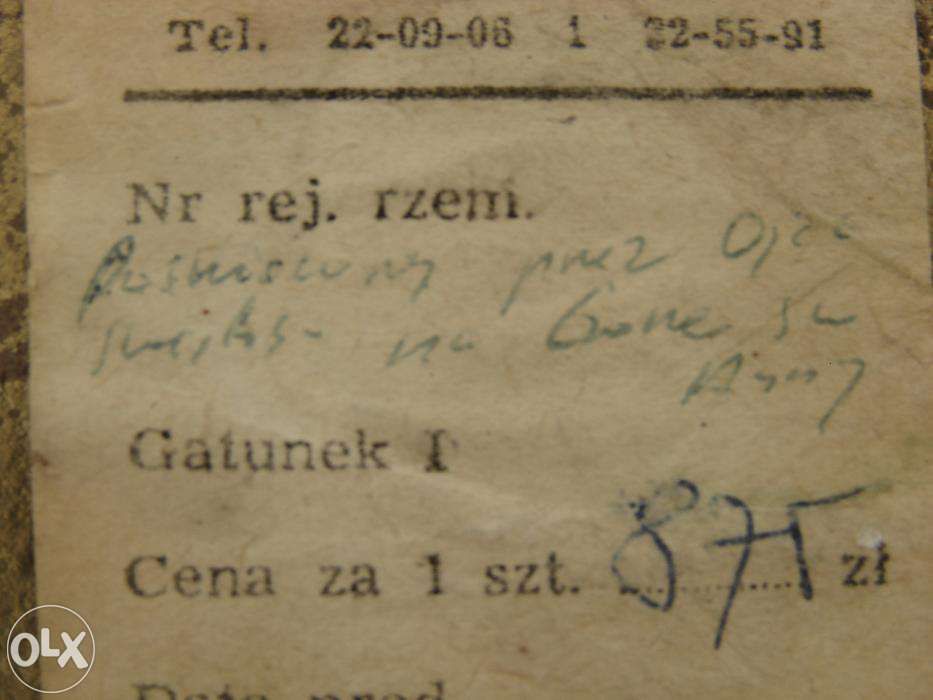 Tel. 22-09-06 i 22-55-91
Nr rej. rzem.
Poświęcony przez Ojca
świętego na Górze św
Anny
Gatunek I
Cena za 1 szt. 875 zł
Data prod.
OLX